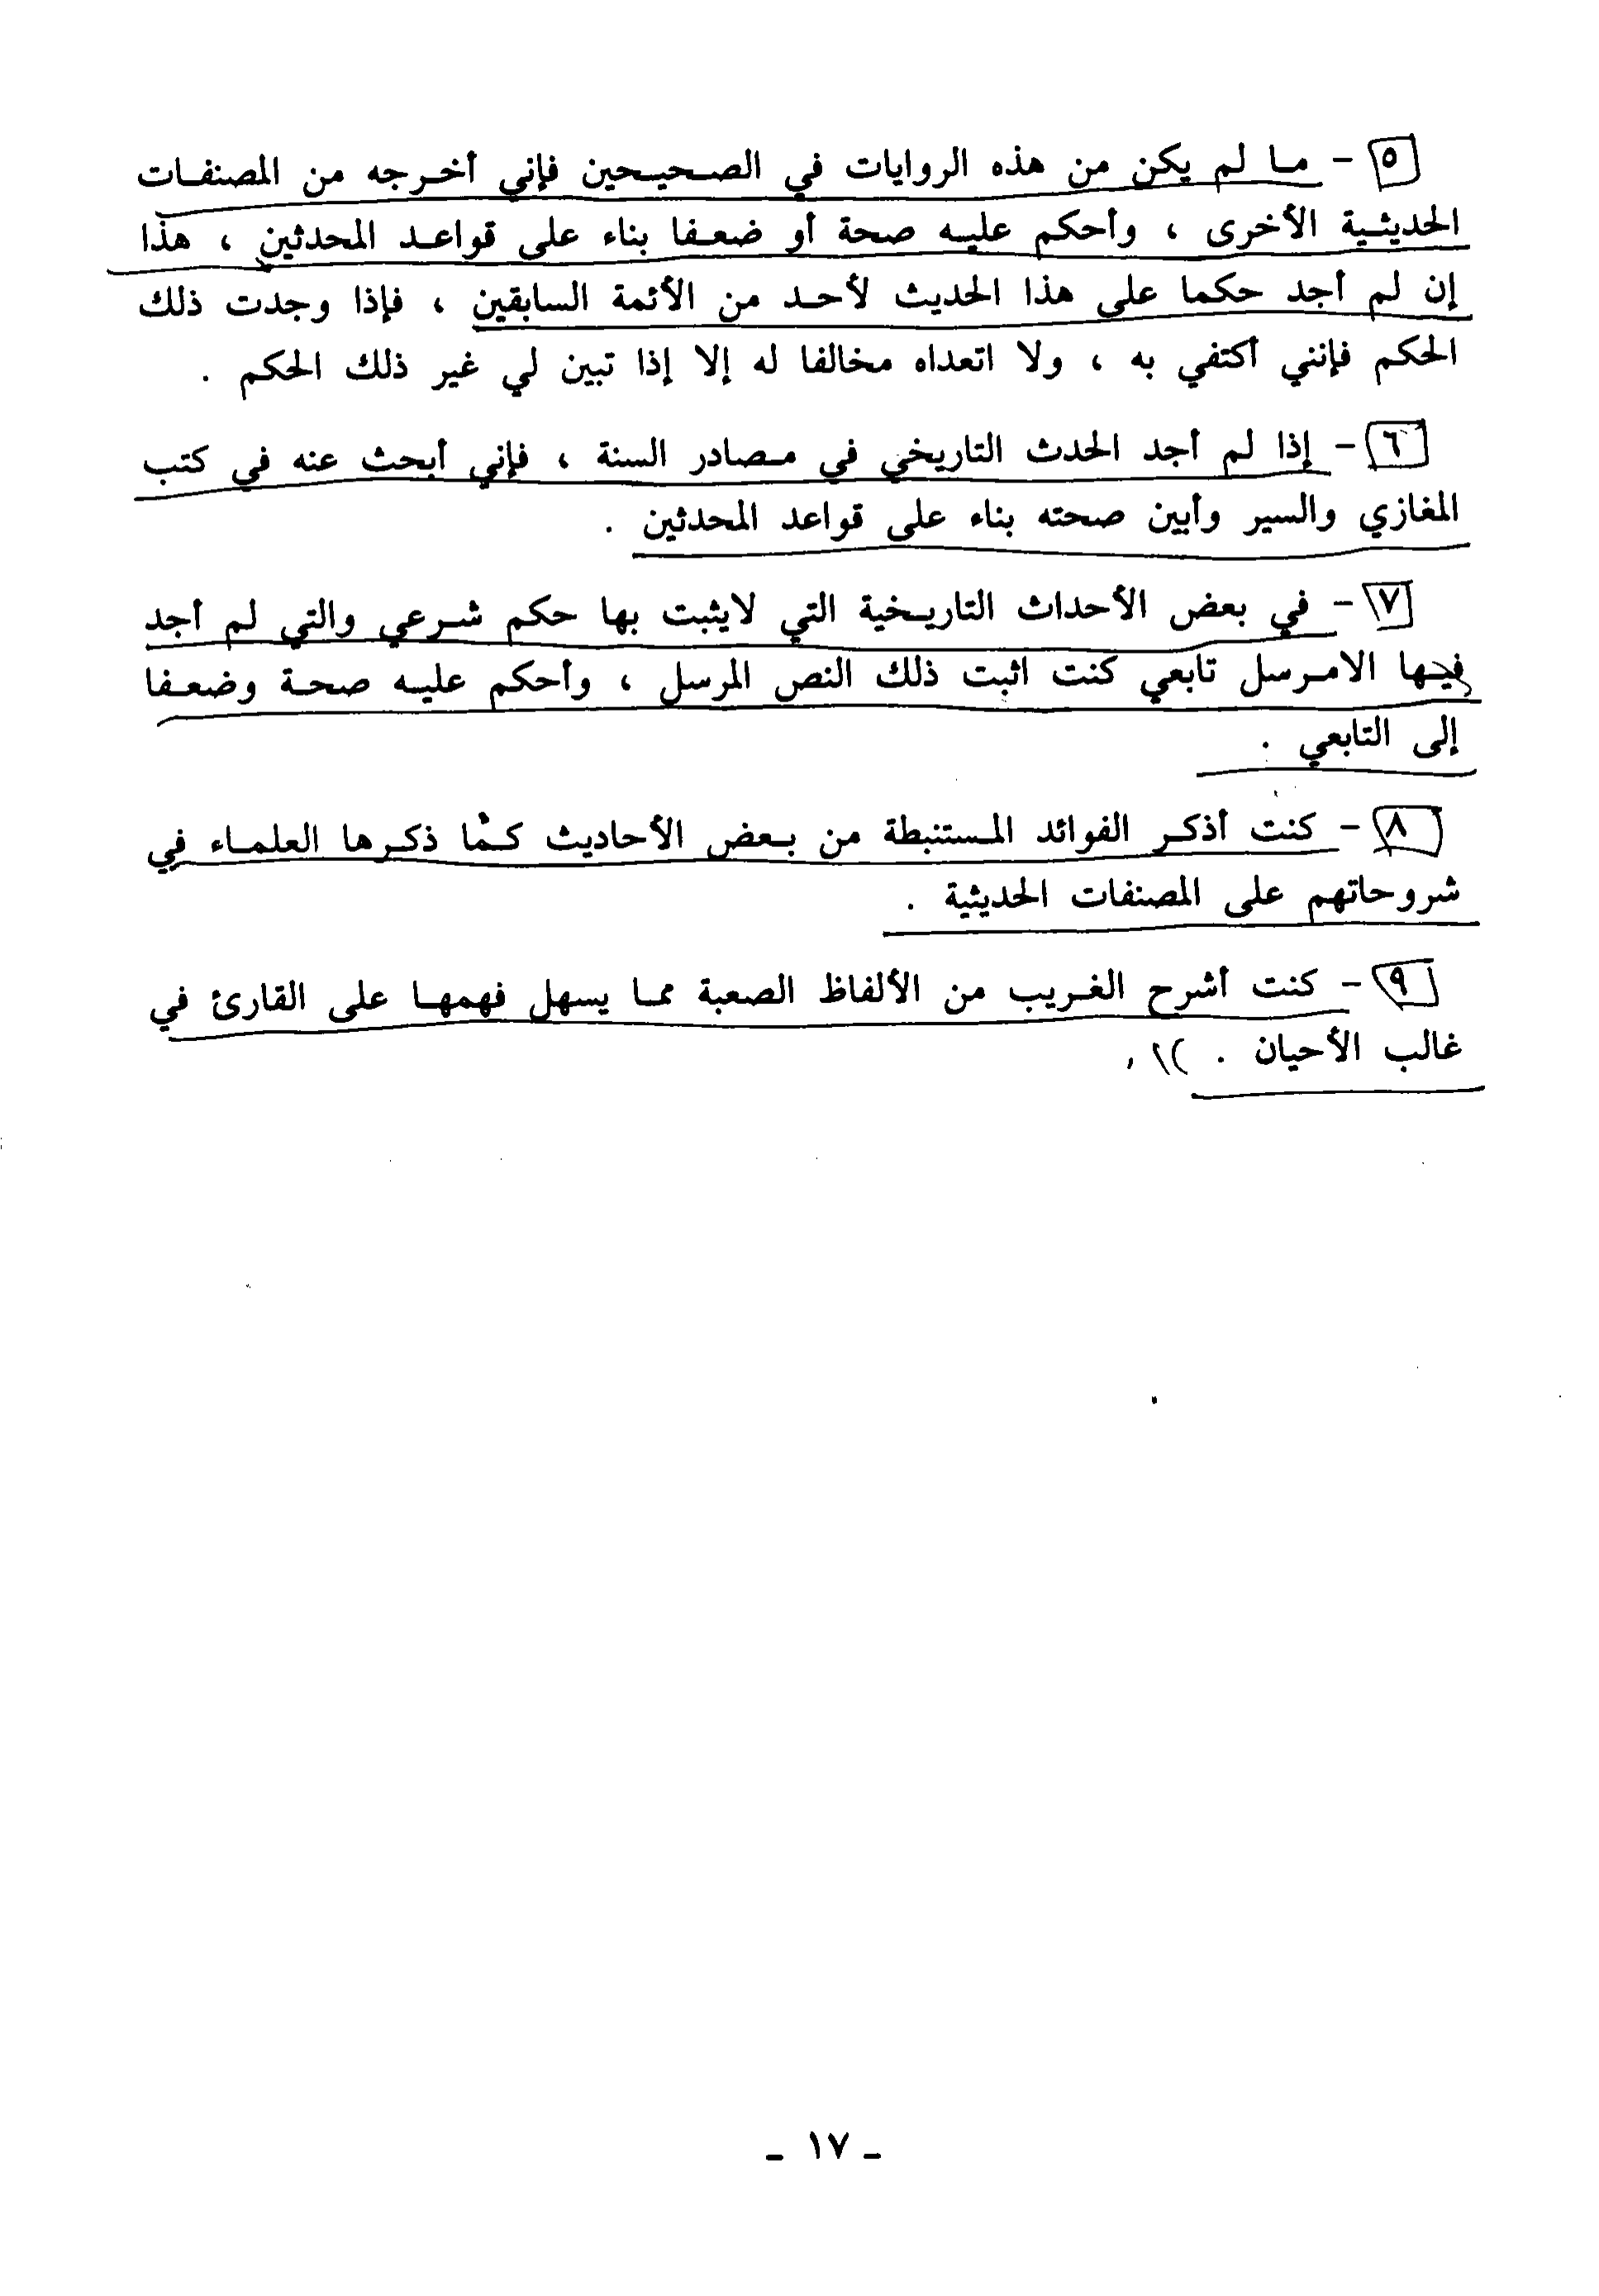 ٥ - ما لم يكن من هذه الروايات في الصحيحين فإني أخرجه من المصنفات
الحديثية الأخرى ، وأحكم عليه صحة أو ضعفا بناء على قواعد المحدثين ، هذا
إن لم أجد حكما على هذا الحديث لأحد من الأئمة السابقين ، فإذا وجدت ذلك
الحكم فإنني أكتفي به ، ولا اتعداه مخالفا له إلا إذا تبين لي غير ذلك الحكم .
٦ - إذا لم أجد الحدث التاريخي في مصادر السنة ، فإني أبحث عنه في كتب
المغازي والسير وأبين صحته بناء على قواعد المحدثين .
٧ - في بعض الأحداث التاريخية التي لايثبت بها حكم شرعي والتي لم أجد
فيها الامرسل تابعي كنت اثبت ذلك النص المرسل ، وأحكم عليه صحة وضعفا
إلى التابعي .
٨ - كنت أذكر الفوائد المستنبطة من بعض الأحاديث كما ذكرها العلماء في
شروحاتهم على المصنفات الحديثية .
٩ - كنت أشرح الغريب من الألفاظ الصعبة مما يسهل فهمها على القارئ في
غالب الأحيان .
ـ ١٧ ـ